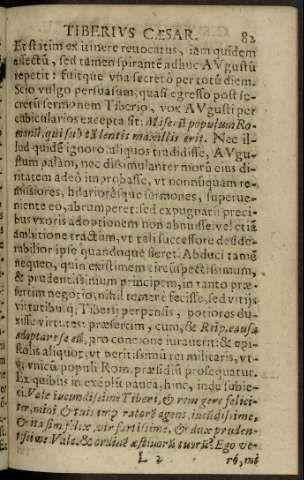 TIBERIVS CÆSAR. 82
Et statim ex itinere reuocatus, iam quidem
affectū, sed tamen spirantē adhuc AVgustū
repetit: fuitque vnà secretò per totū diem.
Scio vulgo persuasum, quasi egresso post se-
cretū sermonem Tiberio, vox AVgusti per
cubicularios excepta sit: Miserū populum Ro-
manū, qui sub tā lentis maxillis erit. Nec il-
lud quidē ignoro aliquos tradidisse, AVgu-
stum palàm, nec dissimulanter morū eius di-
ritatem adeò improbasse, vt nonnūquam re-
missiores, hilarioresque sermones, superue-
niente eo, abrumperet: sed expugnatū preci-
bus vxoris adoptionem non abnuisse: vel etiā
ambitione tractum, vt tali successore deside-
rabilior ipse quandoque fieret. Abduci tamē
nequeo, quin existimem circūspectissimum,
& prudentissimum principem, in tanto præ-
sertim negotio, nihil temerè fecisse, sed vitijs
virtutibusq; Tiberij perpensis, potiores du-
xisse virtutes: præsertim, cum, & Reip. causa
adoptare se eū, pro concione iurauerit: & epi-
stolis aliquot, vt peritissimū rei militaris, vt-
q; vnicū populi Rom. præsidiū prosequatur.
Ex quibus in exemplū pauca, hinc, inde subie-
ci. Vale iucundissime Tiberi, & rem gere felici-
ter,
& ita sim felix, vir fortissime, & dux pruden-
tissime. Vale. & ordinē æstiuorū tuorū? Ego ve-
L 2 rò, mi